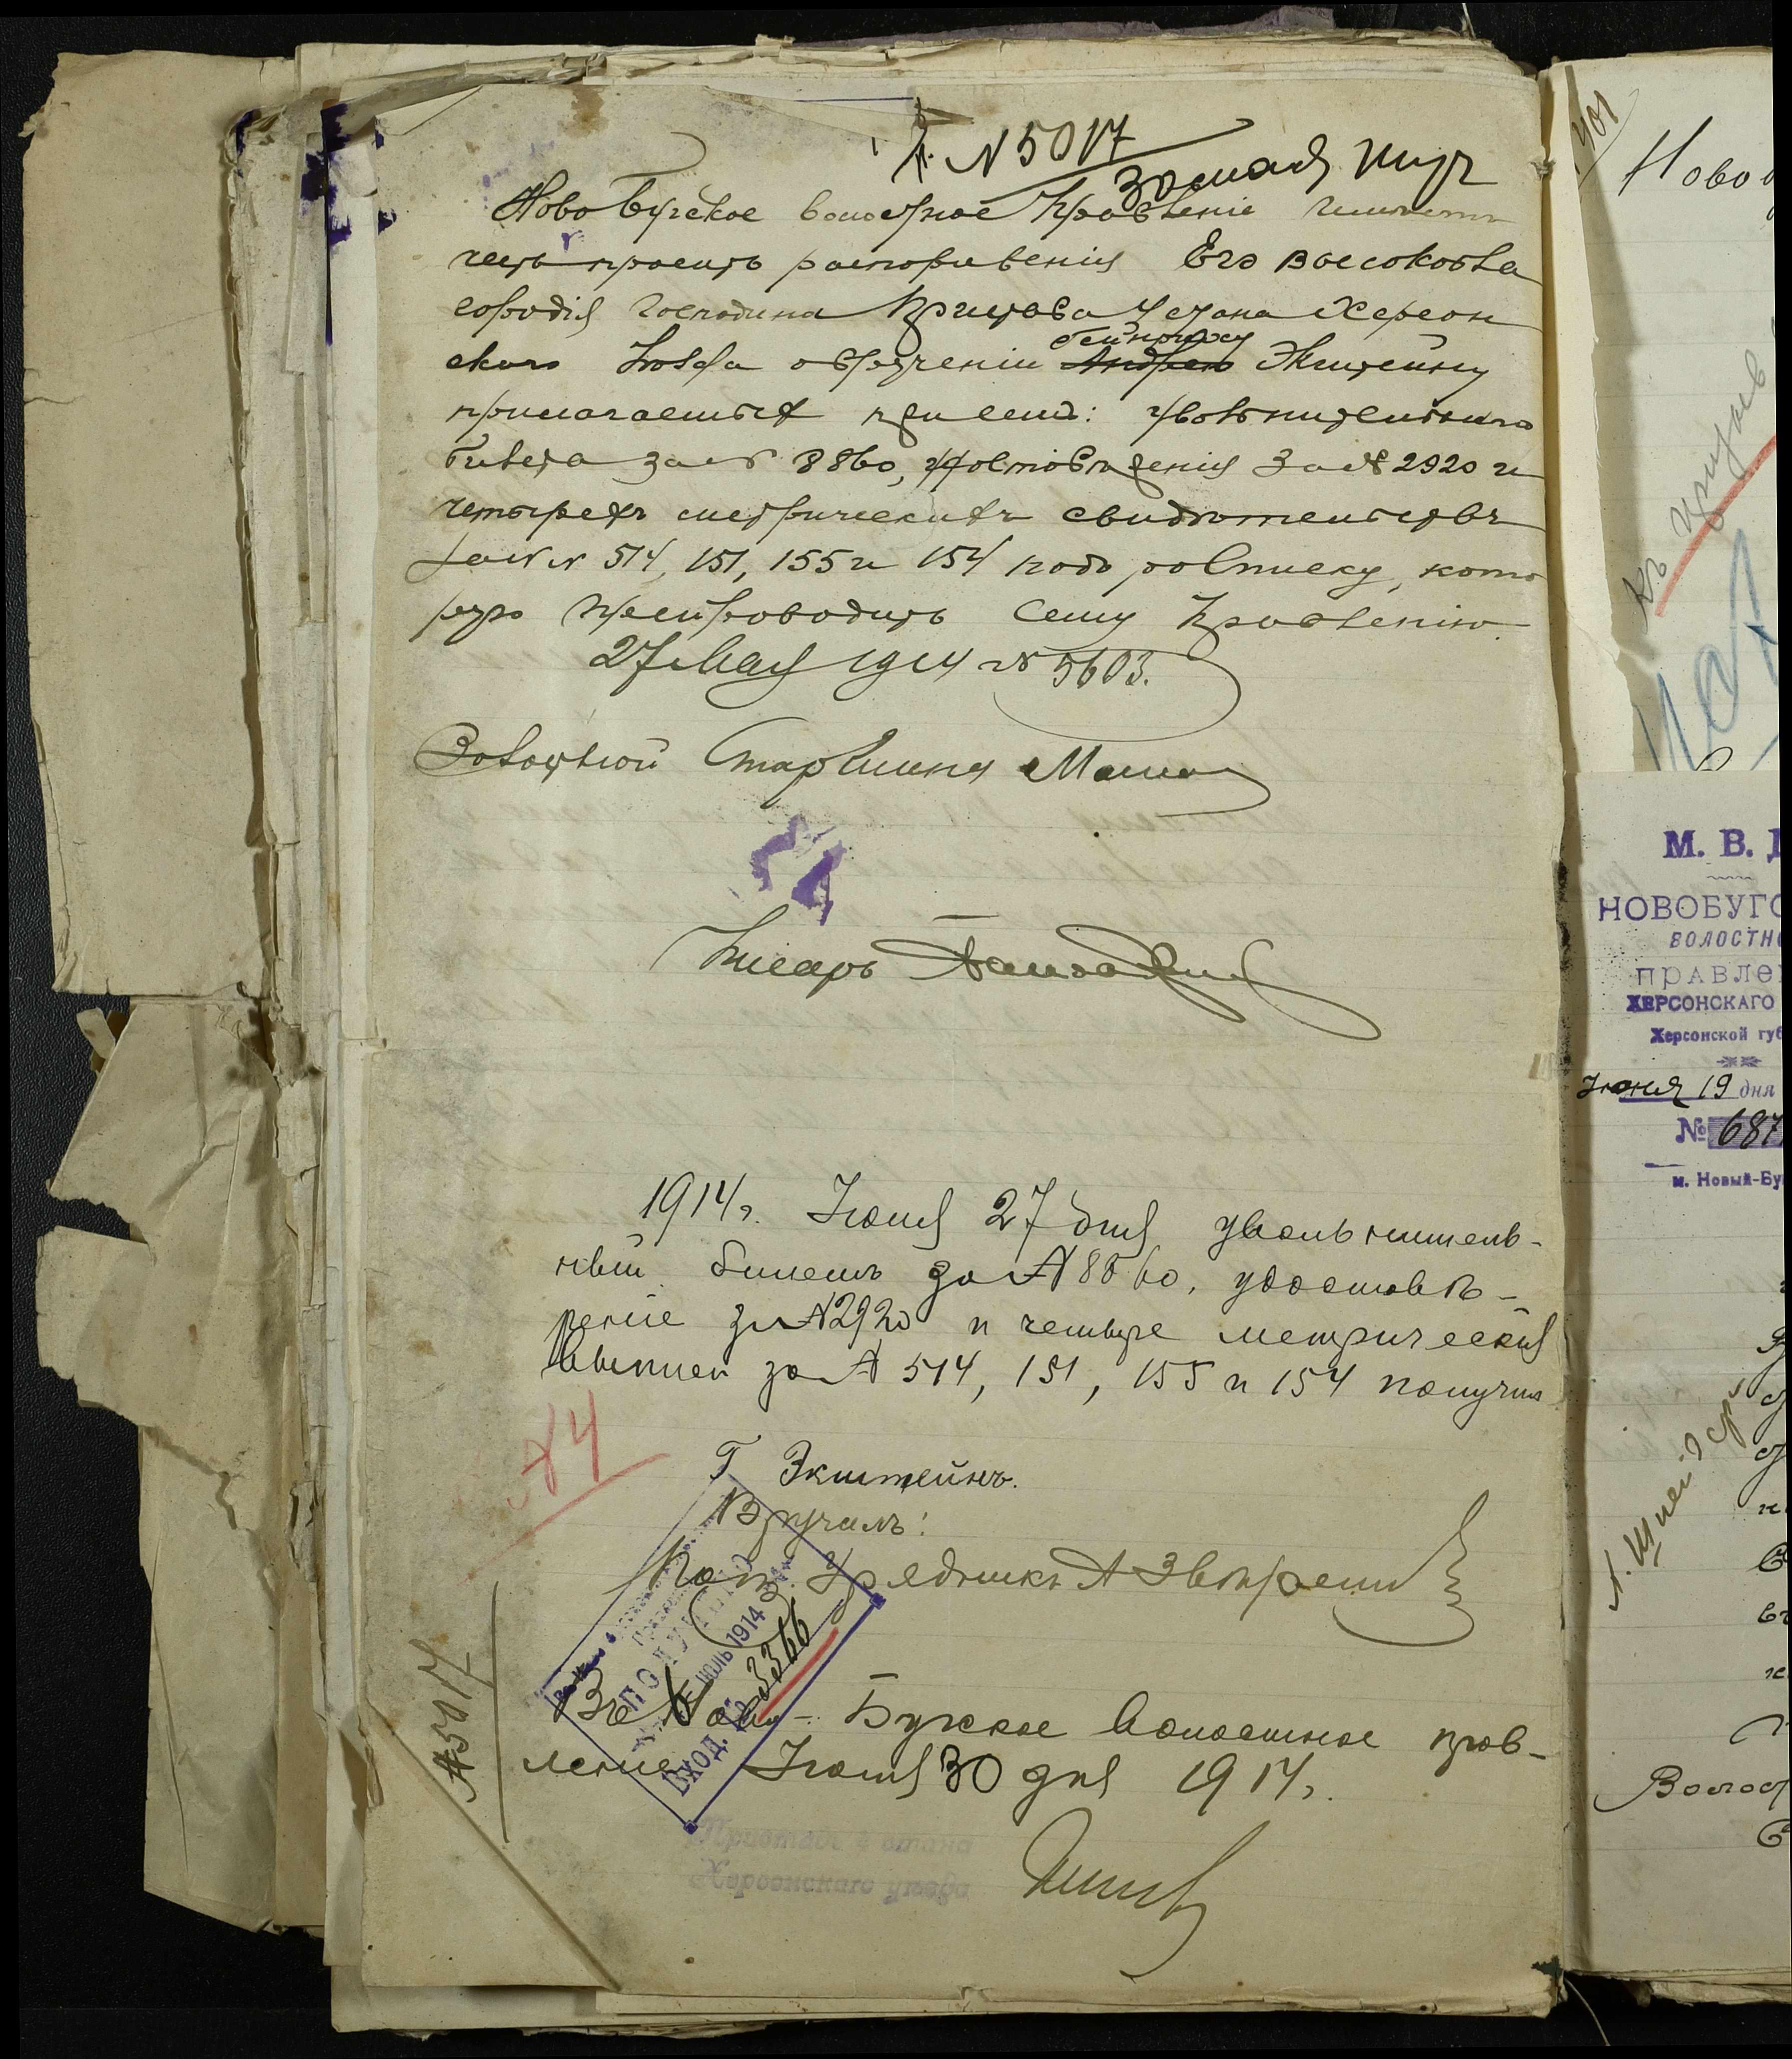 № 5017
НовоБугское волостное Правленіе имѣетъ
честь просить распоряженія Его Высокобла
городія Господина Пристава 4 стана Херсон
скаго уѣзда о врученіи Экштейну
прилагаемыхъ при семъ: увольнительнаго
билета за № 8860, удостовѣренія за № 2920 и
четырехъ метрическихъ свидѣтельствъ
за №№ 514, 151, 155 и 154 подъ росписку, кото
рую препроводить сему Правленію.
27 Мая 1914 № 5603.
Волостной Старшина
Писарь
1914 г. Іюня 27 дня увольнитель-
ный билетъ за № 8860, удостовѣ-
реніе за № 2920 и четыре метрическія
выписи за № 514, 151, 155 и 154 получил
Г Экштейнъ.
Вручилъ:
Урядникъ
ПОЛУЧЕНО
ІЮЛЬ 1914
ВХОД. № 3366
Въ Ново-Бугское волостное прав-
леніе Іюня 30 дня 1914 г.
№ 5017
Приставъ 4 стана
Херсонскаго уѣзда
№ 4
Ново
М. В. Д
НОВОБУГС
ВОЛОСТНО
ПРАВЛЕ
ХЕРСОНСКАГО
Херсонской губ
Іюня 19 дня
№ 687
м. Новый-Бу
Волос